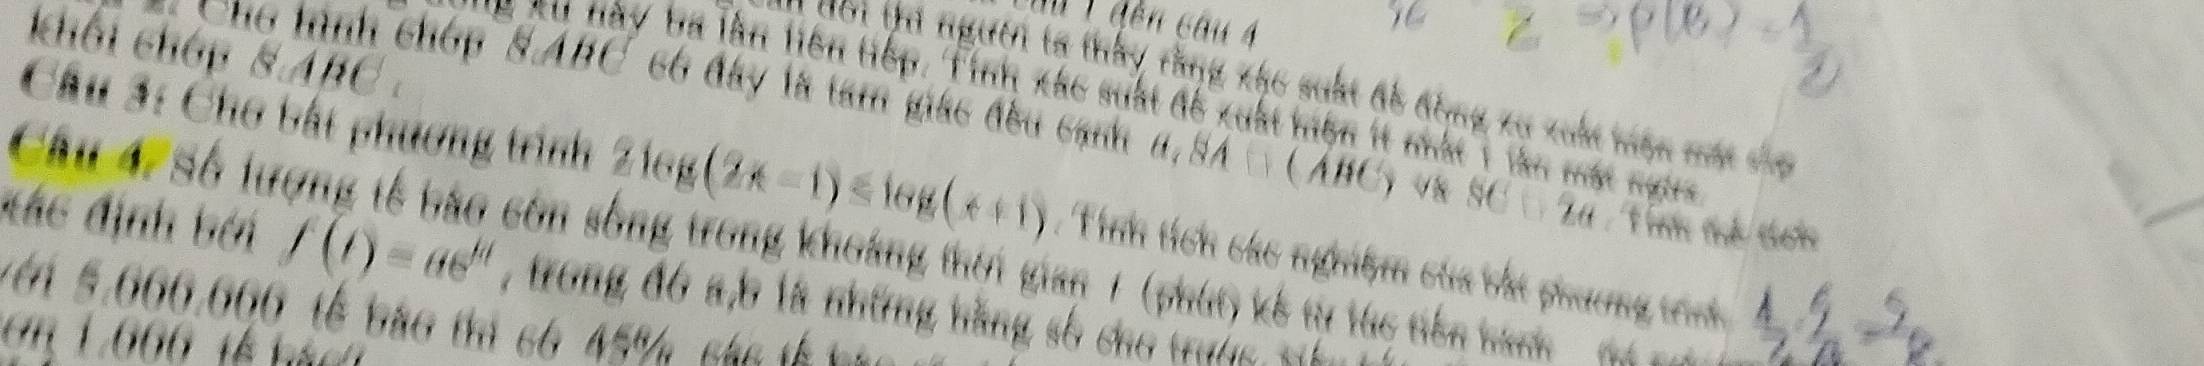 câu 4
đổi thì người ta thấy rằng xác suất để đồng xu xuất hiện mặt
xu này ba lần liên tiếp. Tính xác suất để xuất hiện ít nhất 1 lần mặt ngửa.
Cho hình chóp S.ABC có đáy là tam giác đều cạnh a, SA □ (ABC) và SC □ 2a. Tính thể tích
khối chóp S.ABC.
Câu 3: Cho bất phương trình 2log(2x − 1) ≤ log(x + 1). Tính tích các nghiệm của bất phương trình
Câu 4. Số lượng tế bào còn sống trong khoảng thời gian t (phút) kể từ lúc tiến hành
xác định bởi f(t) = ae^{bt}, trong đó a,b là những hằng số cho trước.
với 5.000.000 tế bào thì có 45% các tế
1.000 tế